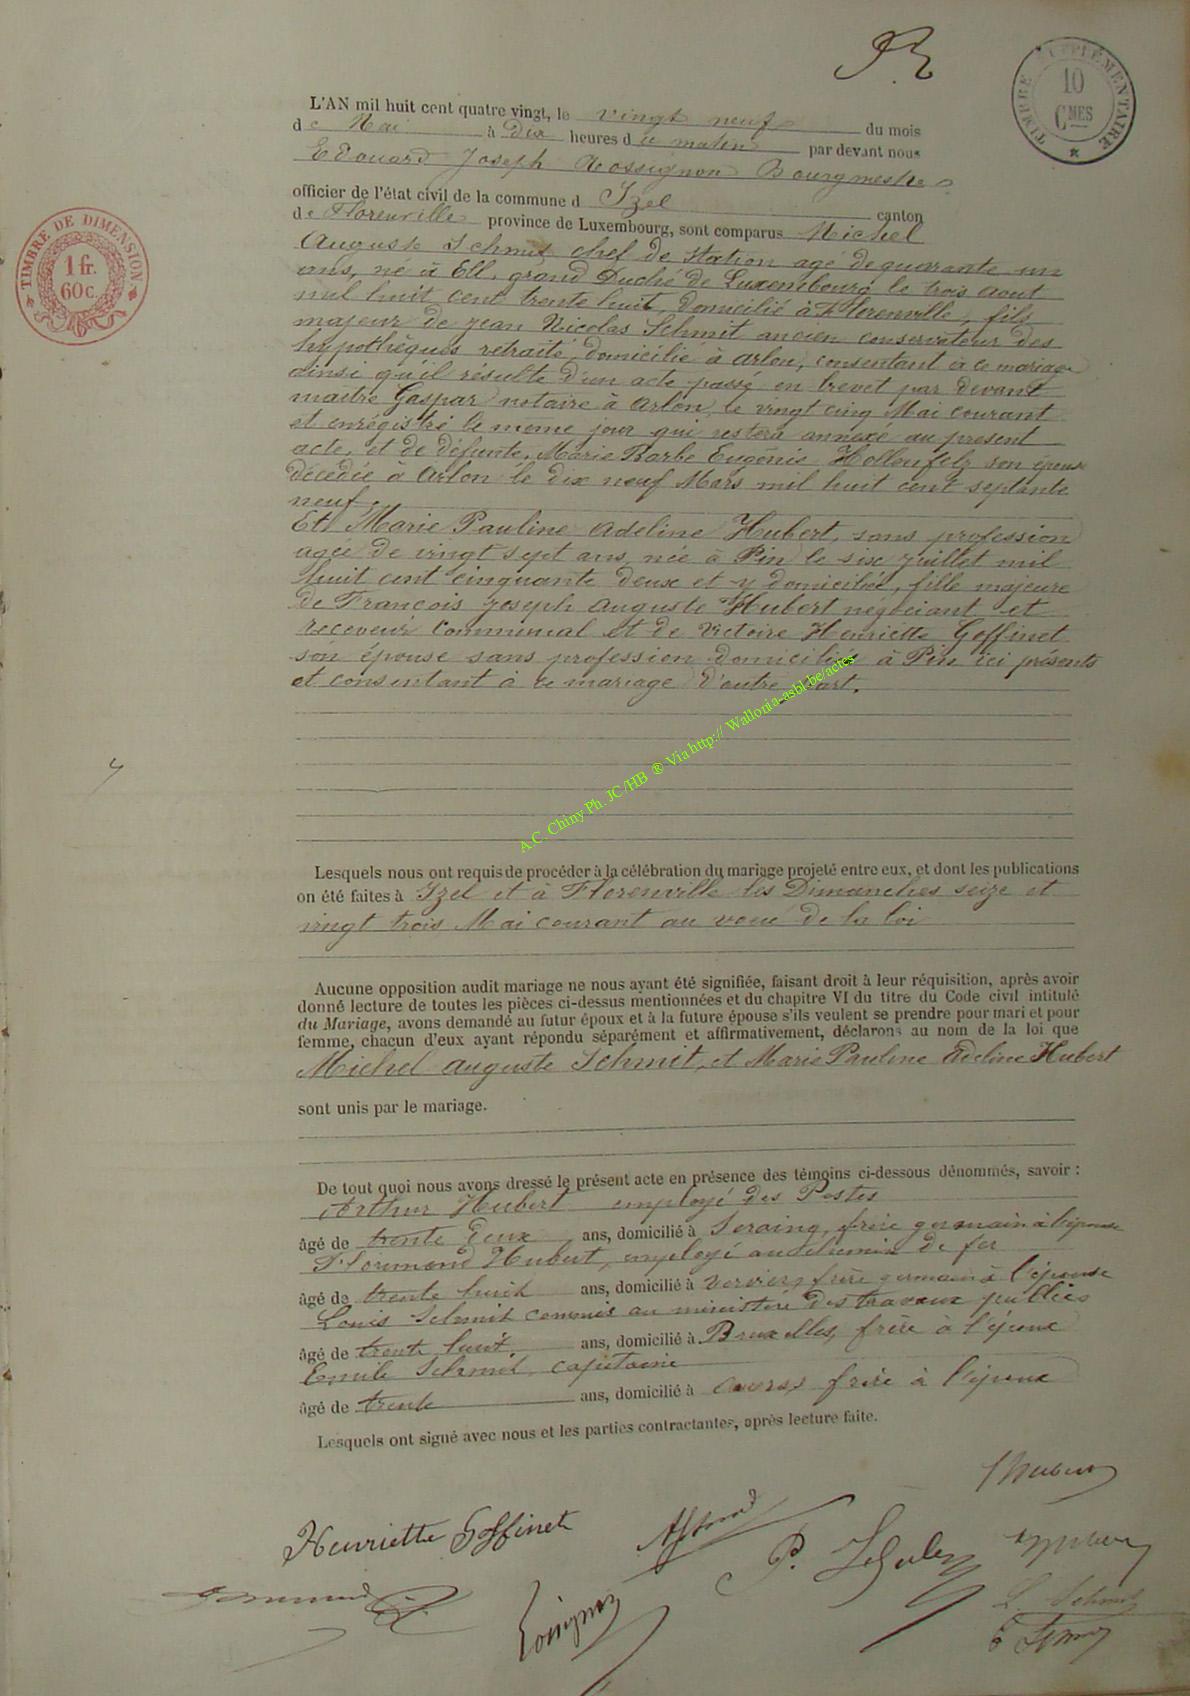 TIMBRE SUPPLÉMENTAIRE
10
CMES
L'AN mil huit cent quatre vingt, le vingt neuf du mois
de Mai à dix heures du matin par devant nous
Edouard Joseph Rossignon Bourgmestre
officier de l'état civil de la commune d Izel canton
de Florenville province de Luxembourg, sont comparus Michel
TIMBRE DE DIMENSION
1 fr.
60 c.
Auguste Schmit chef de station agé de quarante un
ans, né à Ell, grand Duché de Luxembourg le trois aout
mil huit cent trente huit, domicilié à Florenville, fils
majeur de jean Nicolas Schmit ancien conservateur des
hypothèques retraité, domicilié à arlon, consentant à ce mariage
ainsi qu'il résulte d'un acte passé en brevet par devant
maitre Gaspar notaire à Arlon, le vingt cinq Mai courant
et enrégistré le meme jour qui restera annexé au present
acte, et de défunte, Marie Barbe Eugénie Hollenfelz son épouse
décedée à Arlon le dix neuf Mars mil huit cent septante
neuf.
Et Marie Pauline Adeline Hubert, sans profession
agée de vingt sept ans, née à Pin le six juillet mil
huit cent cinquante deux et y domiciliée, fille majeure
de François joseph auguste Hubert négociant et
receveur communal et de Victoire Henriette Goffinet
son épouse sans profession domiciliés à Pin ici présents
et consentant à ce mariage d'autre part.
A.C. Chiny Ph. JC /HB ® Via http:// Wallonia-asbl.be/actes
Lesquels nous ont requis de procéder à la célébration du mariage projeté entre eux, et dont les publications
on été faites à Izel et à Florenville les Dimanches seize et
vingt trois Mai courant au voeu de la loi
Aucune opposition audit mariage ne nous ayant été signifiée, faisant droit à leur réquisition, après avoir
donné lecture de toutes les pièces ci-dessus mentionnées et du chapitre VI du titre du Code civil intitulé
du Mariage, avons demandé au futur époux et à la future épouse s'ils veulent se prendre pour mari et pour
femme, chacun d'eux ayant répondu séparément et affirmativement, déclarons au nom de la loi que
Michel auguste Schmit, et Marie Pauline Adeline Hubert
sont unis par le mariage.
De tout quoi nous avons dressé le présent acte en présence des témoins ci-dessous dénommés, savoir :
Arthur Hubert employé des Postes
âgé de trente deux ans, domicilié à Seraing, frère germain à l'épouse
Florimond Hubert, employé au chemin de fer
âgé de trente huit ans, domicilié à Verviers, frère germain à l'épouse
Louis Schmit commis au ministère des travaux publics
âgé de trente huit ans, domicilié à Bruxelles, frère à l'époux
Emile Schmit, capitaine
âgé de trente ans, domicilié à Anvers, frère à l'époux
Lesquels ont signé avec nous et les parties contractantes, après lecture faite.
Hubert
Henriette Goffinet
Rossignon
L. Schmit
E Schmit